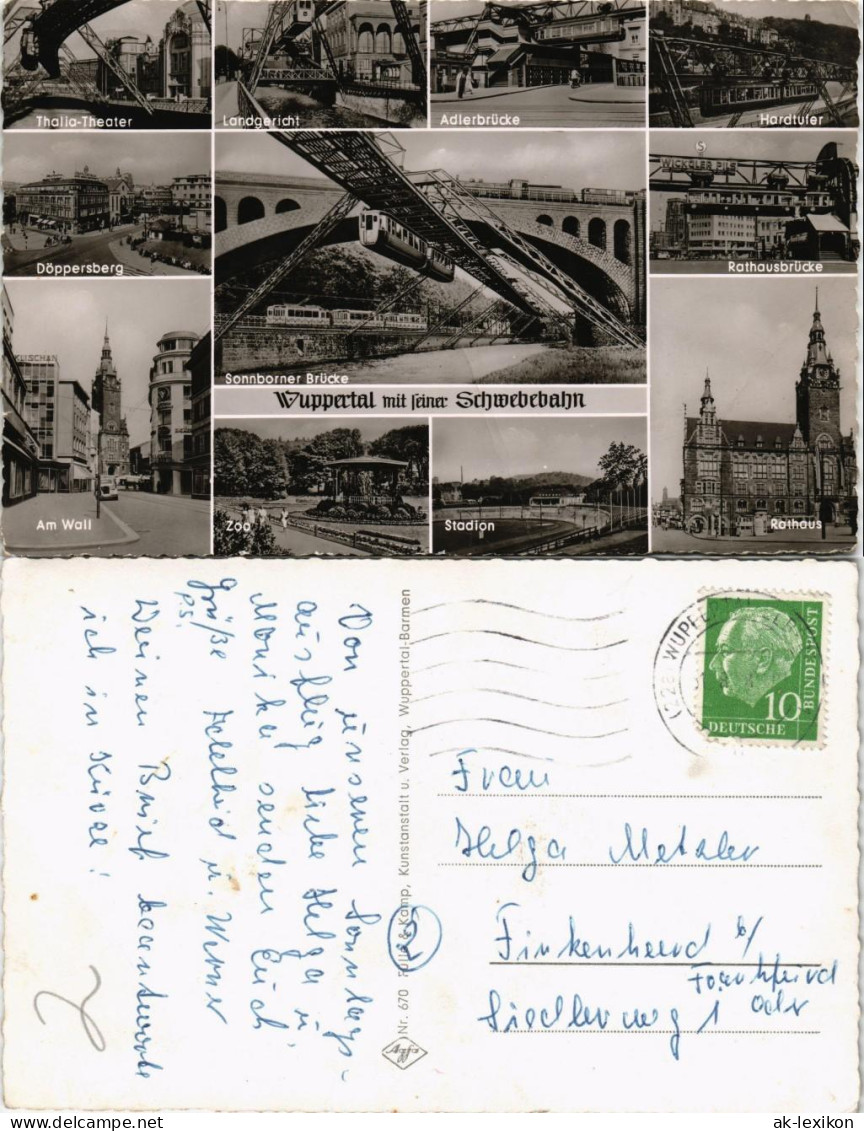 Thalia-Theater
Landgericht
Adlerbrücke
Hardtufer
Döppersberg
WICKÜLER PILS
Rathausbrücke
Sonnborner Brücke
Wuppertal mit seiner Schwebebahn
Am Wall
Zoo
Stadion
Rathaus
Von unseren Sonntags-
ausflug liebe Helga u.
Monika senden Euch
Grüße Adelheid u. Werner
PS!
Deinen Brief beantworte
ich in Kürze!
Nr. 670 & Kamp, Kunstanstalt u. Verlag, Wuppertal-Barmen
Agfa
10
DEUTSCHE
BUNDESPOST
Frau
Helga Metzler
Finkenheerd b/
Frankfurt
Siedlerweg 1 Oder
ak-lexikon